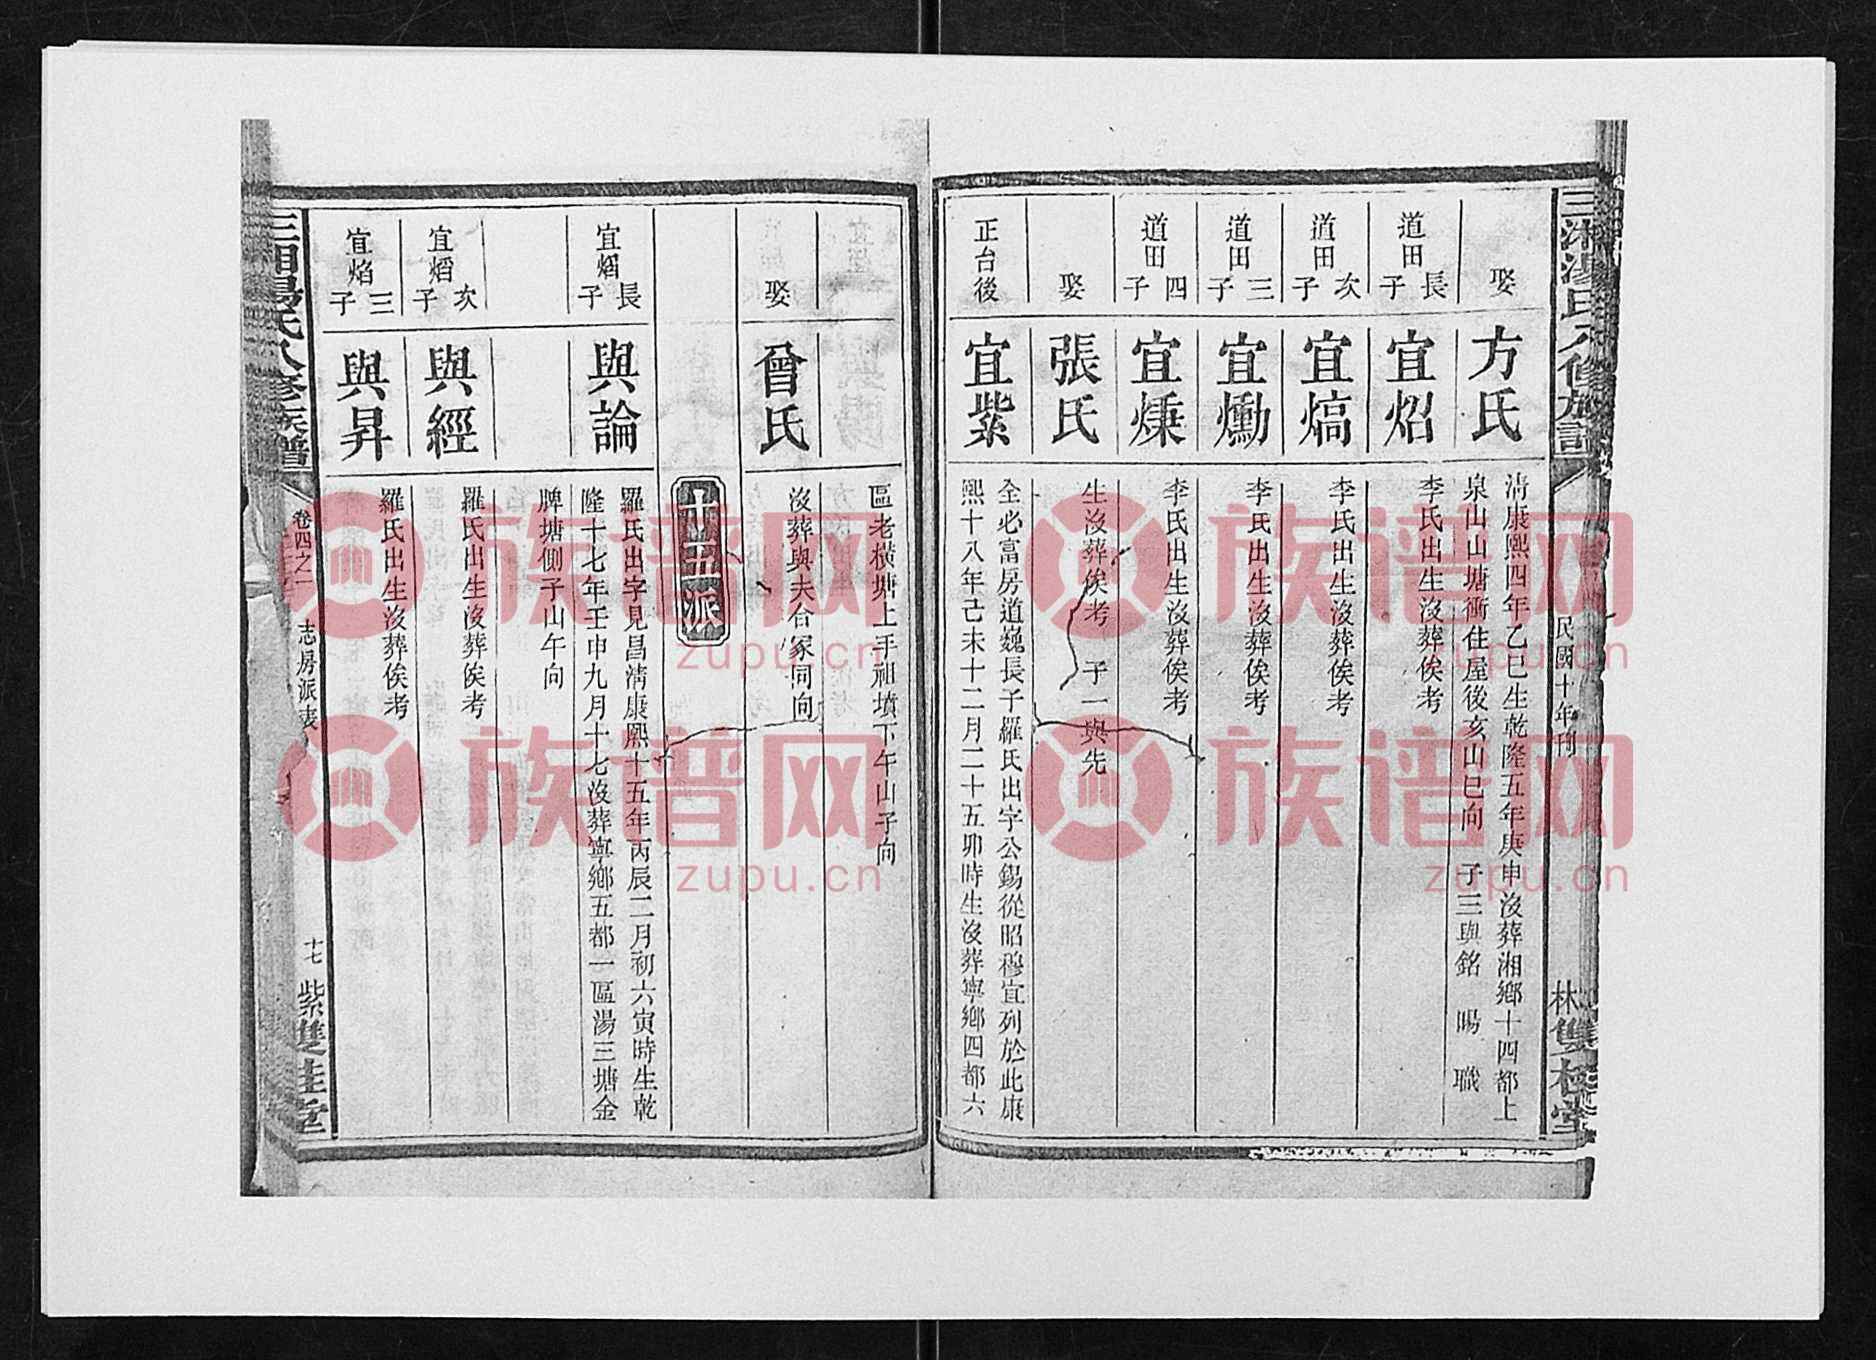 三湘湯氏八修族譜
民國十年刊
林雙桂堂
娶
方氏
清康熙四年乙巳生乾隆五年庚申沒葬湘鄉十四都上
泉山山塘衝住屋後亥山巳向 子三與銘 暘 職
道田長子
宜炤
李氏出生沒葬俟考
道田次子
宜熇
李氏出生沒葬俟考
道田三子
宜勳
李氏出生沒葬俟考
道田四子
宜㷂
李氏出生沒葬俟考
娶
張氏
生沒葬俟考 子一與先
正台後
宜紫
全必富房道巍長子羅氏出字公錫從昭穆宜列於此康
熙十八年己未十二月二十五卯時生沒葬寧鄉四都六
區老橫塘上手祖墳下午山子向
娶
曾氏
沒葬與夫合冢同向
十五派
宜熠長子
與論
羅氏出字見昌清康熙十五年丙辰二月初六寅時生乾
隆十七年壬申九月十七沒葬寧鄉五都一區湯三塘金
牌塘側子山午向
宜熠次子
與經
羅氏出生沒葬俟考
宜焰三子
與昇
羅氏出生沒葬俟考
三湘湯氏八修族譜
卷四之一
志房派表
十七
紫雙桂堂
族谱网
zupu.cn
族谱网
zupu.cn
族谱网
zupu.cn
族谱网
zupu.cn